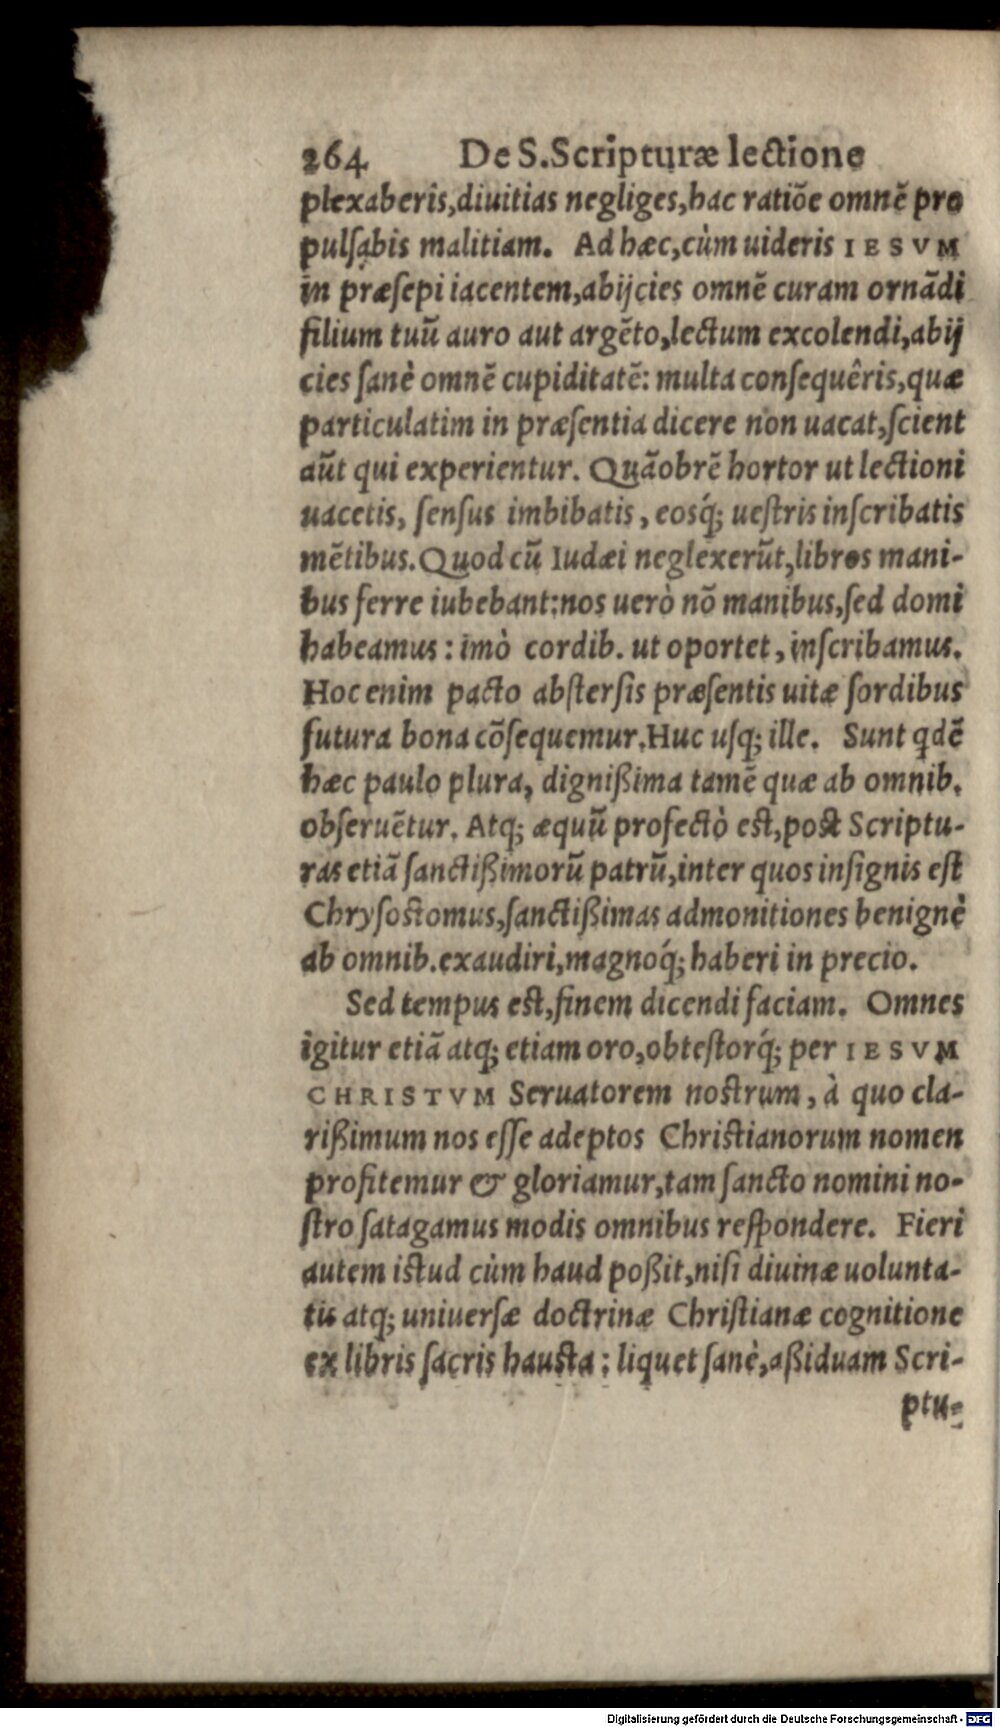 264 De S. Scripturæ lectione
plexaberis, diuitias negliges, hac ratiõe omnẽ pro
pulsabis malitiam. Ad hæc, cùm uideris IESVM
in præsepi iacentem, abijcies omnẽ curam ornãdi
filium tuũ auro aut argẽto, lectum excolendi, abij
cies sanè omnẽ cupiditatẽ: multa consequêris, quæ
particulatim in præsentia dicere non uacat, scient
aũt qui experientur. Quãobrẽ hortor ut lectioni
uacetis, sensus imbibatis, eosq́; uestris inscribatis
mẽtibus. Quod cũ Iudæi neglexerũt, libros mani-
bus ferre iubebant: nos uerò nõ manibus, sed domi
habeamus: imò cordib. ut oportet, inscribamus.
Hoc enim pacto abstersis præsentis uitæ sordibus
futura bona cõsequemur. Huc usq; ille. Sunt qdẽ
hæc paulo plura, dignißima tamẽ quæ ab omnib.
obseruẽtur. Atq; æquũ profectò est, post Scriptu-
ras etiã sanctißimorũ patrũ, inter quos insignis est
Chrysostomus, sanctißimas admonitiones benignè
ab omnib. exaudiri, magnoq́; haberi in precio.
Sed tempus est, finem dicendi faciam. Omnes
igitur etiã atq; etiam oro, obtestorq́; per IESVM
CHRISTVM Seruatorem nostrum, à quo cla-
rißimum nos esse adeptos Christianorum nomen
profitemur & gloriamur, tam sancto nomini no-
stro satagamus modis omnibus respondere. Fieri
autem istud cùm haud poßit, nisi diuinæ uolunta-
tis atq; uniuersæ doctrinæ Christianæ cognitione
ex libris sacris hausta: liquet sanè, aßiduam Scri-
ptu-
Digitalisierung gefördert durch die Deutsche Forschungsgemeinschaft - DFG